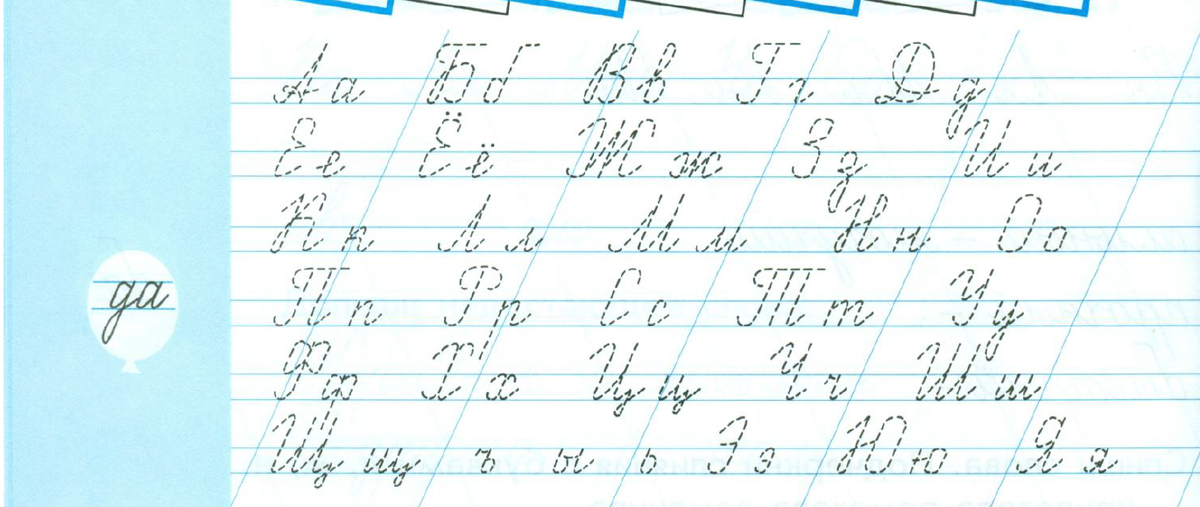 Аа Бб Вв Гг Дд
Ее Ёё Жж Зз Ии
Кк Лл Мм Нн Оо
Пп Рр Сс Тт Уу
Фф Хх Цц Чч Шш
Щщ ъ ы ь Ээ Юю Яя
да